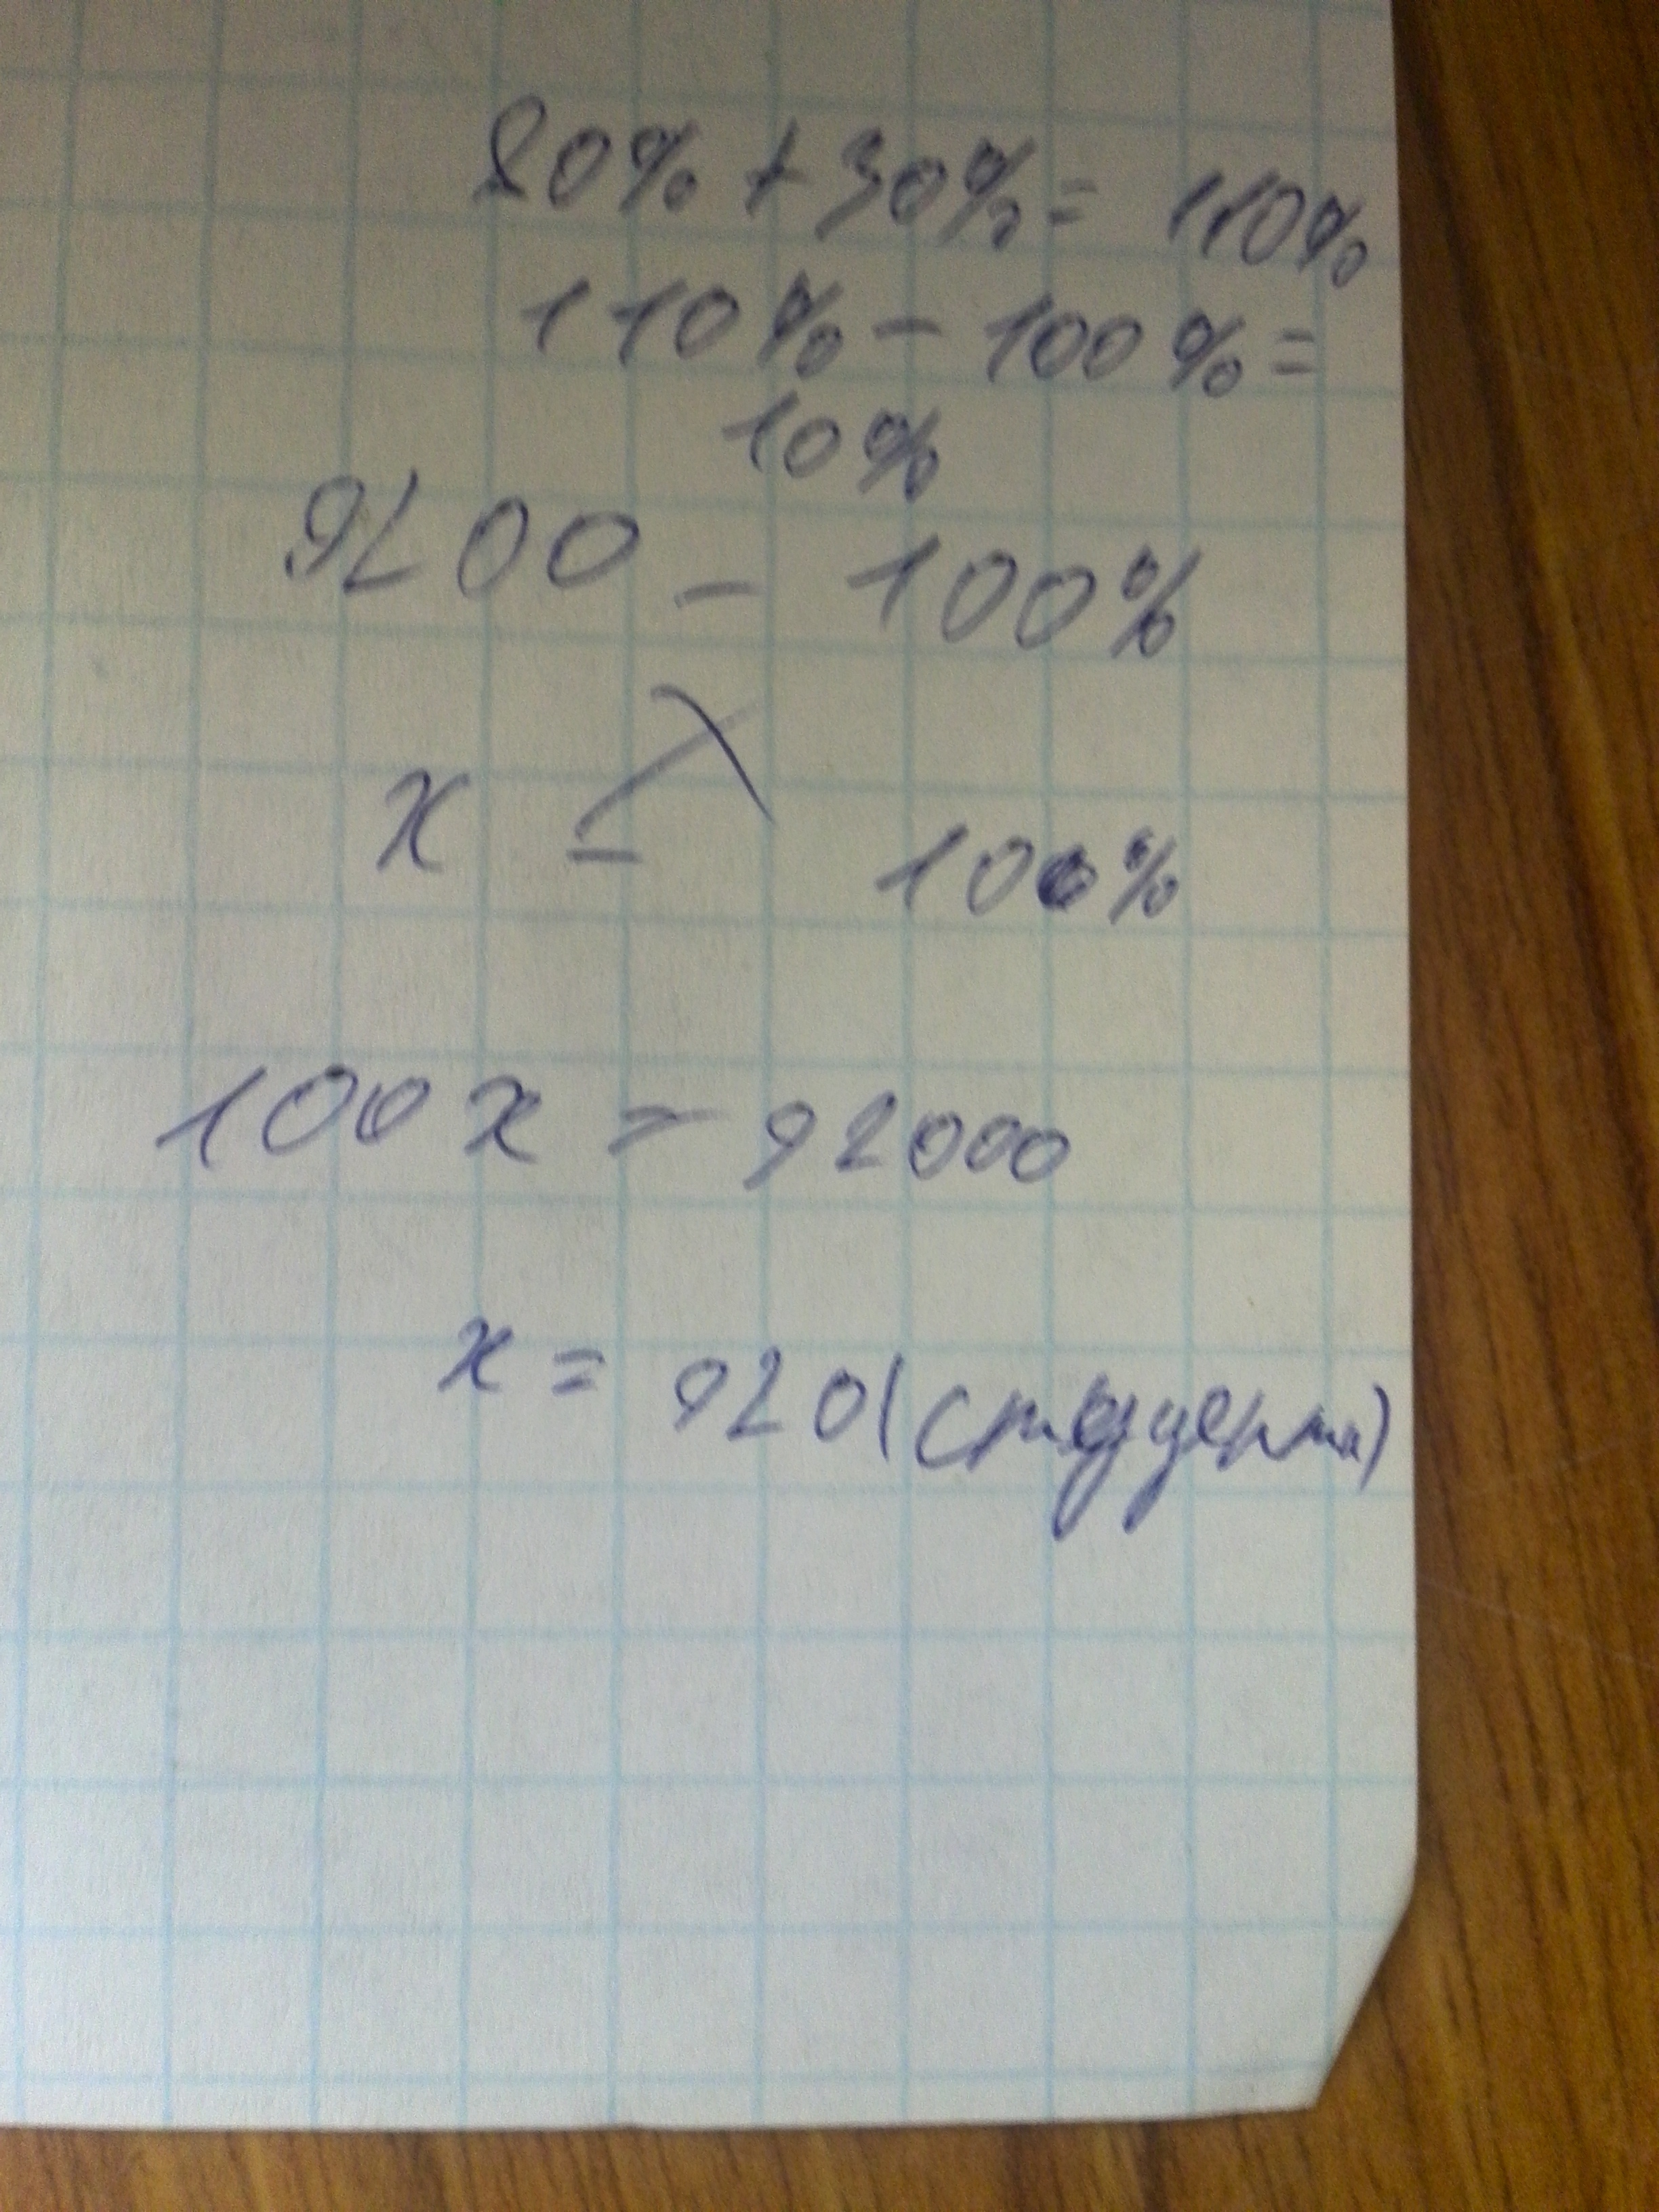 80% + 30% = 110%
110% - 100% =
10%
9200 - 100%
x - 100%
100x = 92000
x = 920 (студент)